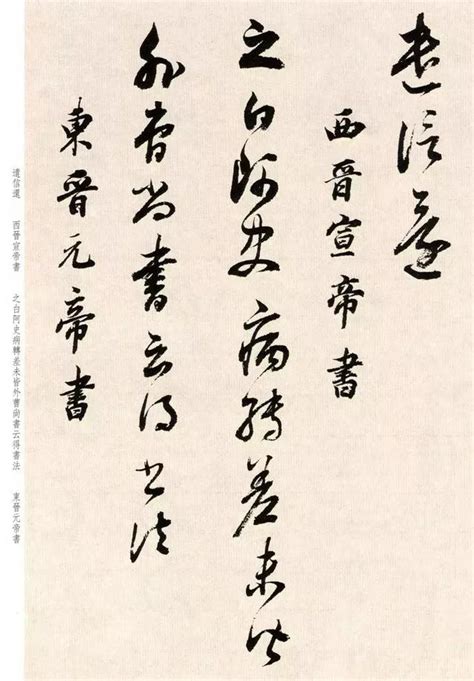 遣信還
西晉宣帝書
之白阿史病轉差未皆
外曹尚書云得書法
東晉元帝書
遣信還 西晉宣帝書 之白阿史病轉差未皆外曹尚書云得書法 東晉元帝書